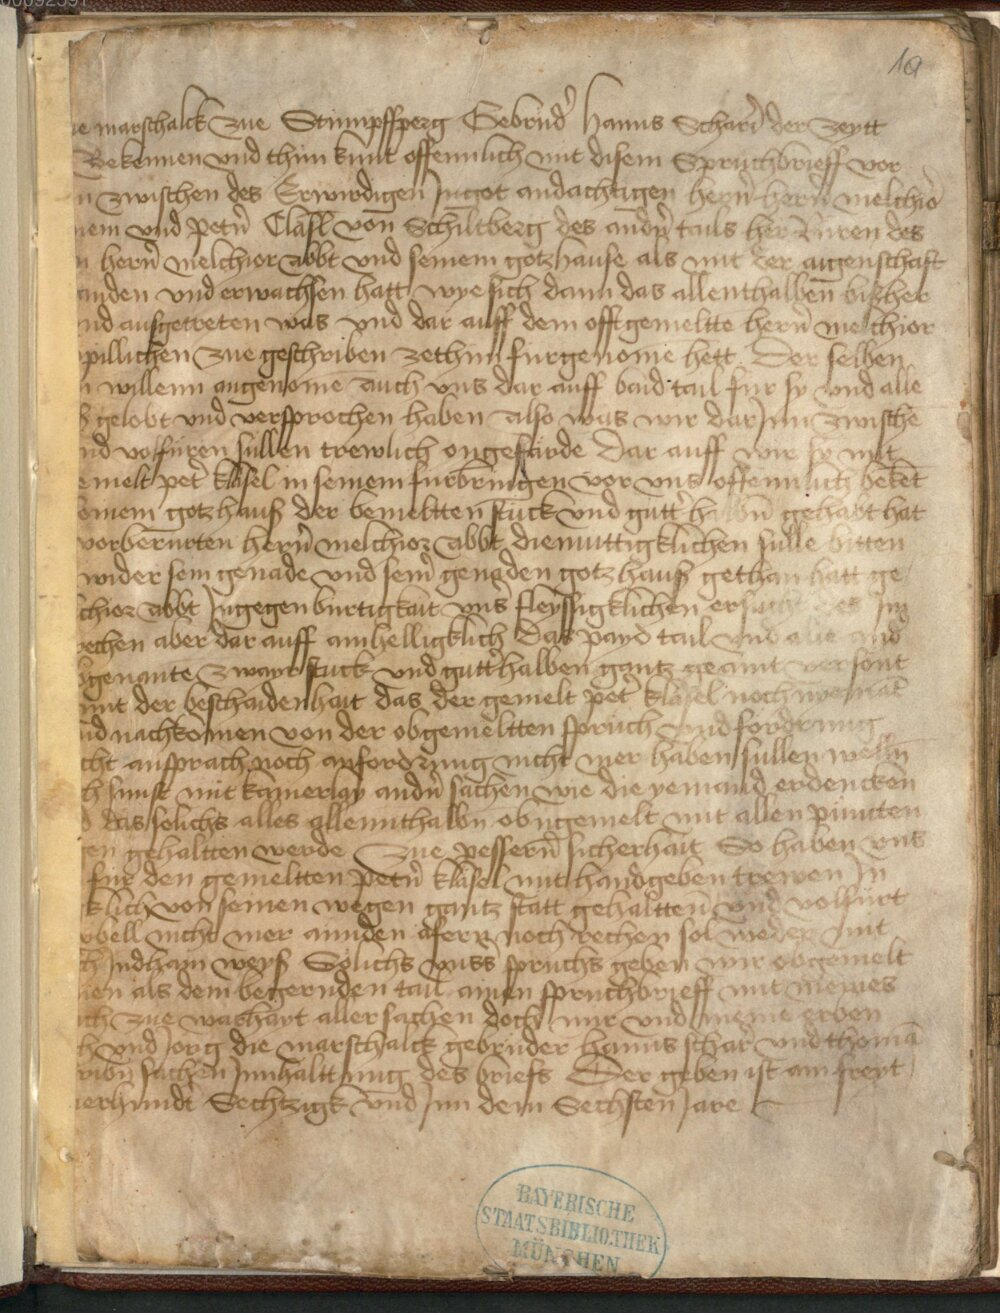 00092591
1a
marschalck zue Stumpffsperg Gebrud' Hanns Schari' der Zeytt
Bekennen vnd thun kunt offennlich mit disem Spruchbrieff vor
zwischen des Erwirdigen Jngot andachtigen hern hern melchio'
vnd Pet'n Cläsl von Schiltberg des and'n tails her Rüren des
hern melchior abbt vnd seinem gotzhause als mit der aigenschaft
vnd erwachsen hatt wye sich dann das allenthalben bißher
ausgetreten was vnd dar auff dem offtgemeltte hern melchior
pillichen zue geschriben zethun furgenome hett Der selben
willenn angenome auch vns dar auff baid tail fur sy vnd alle
gelobt vnd versprochen haben also was wir dar Jnn zwische
volfüren sullen trewlich ongefärde Dar auff wir sy mit
pet' kläsel in seinem furbringen vor vns offennlich bekēt
gotzhauß der bemeltten stuck vnd gutt' halbn gehabt hat
vorberurten hern melchior abbt diemuttigklichen sulle bitten
wider sein genade vnd sein' genaden gotzhauß gethan hatt ge
abbt Jngegenburtigkait vns' fleyssigklichen
aber dar auff ainhelligklich Das payd tail vnd alle
zwayr stuck vnd gutt'halben gantz geaint versönt
mit der beschaidenhait das der gemelt pet' kläsel noch
nachkomen von der obgemeltten spruch vnd fordrung
ansprach noch anfordrung nicht mer haben sullen welln
sunst mit kainerlay and'n sachen wie die yemand erdencken
das solichs alles allennthalbn obngemelt mit allen puncten
gehaltten werde Zue pessern sicherhait So haben vns
fur den gemeltten Pet'n kläsel mit handgeben trewen Jn
von seinen wegen gantz statt gehaltten vnd volfürt
nicht mer annden äfern noch rechen sol weder mit
weyß Solichs vnss' spruchs geben wir obgemelt
als dem begernden tail ainen spruchbrieff mit meines
zue warhayt aller sachen doch mir vnd meine erben
vnd Jorg die marschalck gebruder hanns schar' vnd thoma
sachen Jnnhalttung des briefs Der geben ist am freyt
Sechtzigk vnd Jnn dem Sechsten Jare
BAYERISCHE
STAATSBIBLIOTHEK
MÜNCHEN